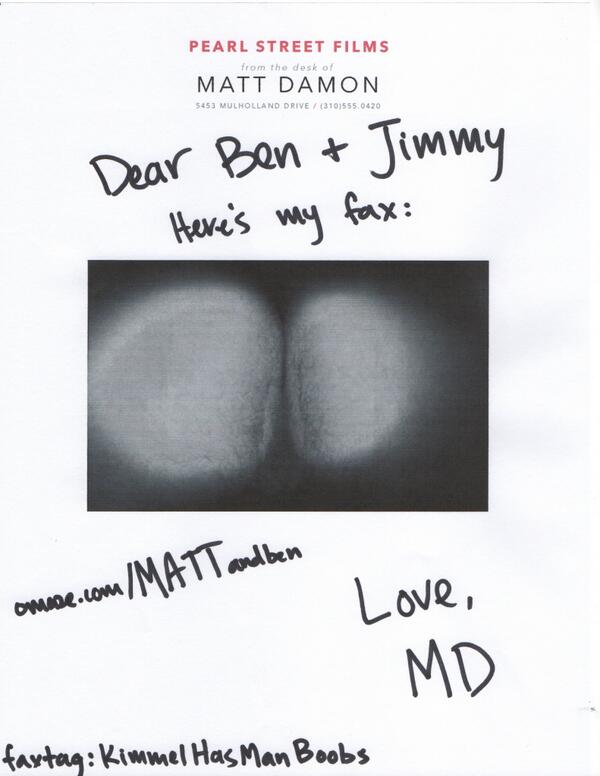 PEARL STREET FILMS
from the desk of
MATT DAMON
5453 MULHOLLAND DRIVE / (310)555.0420
Dear Ben + Jimmy
Here's my fax:
omaze.com/MATTandben
Love,
MD
faxtag: KimmelHasManBoobs